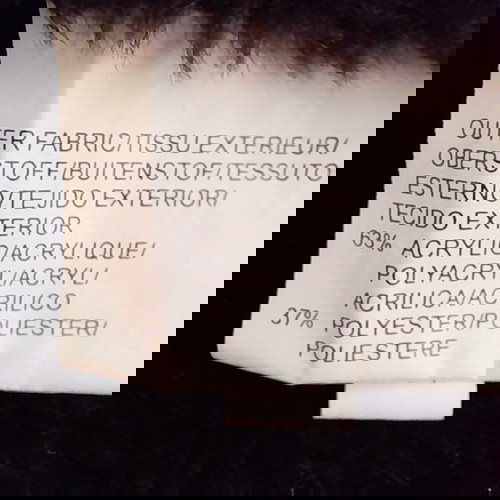 OUTER FABRIC/TISSU EXTERIEUR/
OBERSTOFF/BUITENSTOF/TESSUTO
ESTERNO/TEJIDO EXTERIOR/
TECIDO EXTERIOR
63% ACRYLIC/ACRYLIQUE/
POLYACRYL/ACRYL/
ACRILICA/ACRILICO
37% POLYESTER/POLIESTER/
POLIESTERE